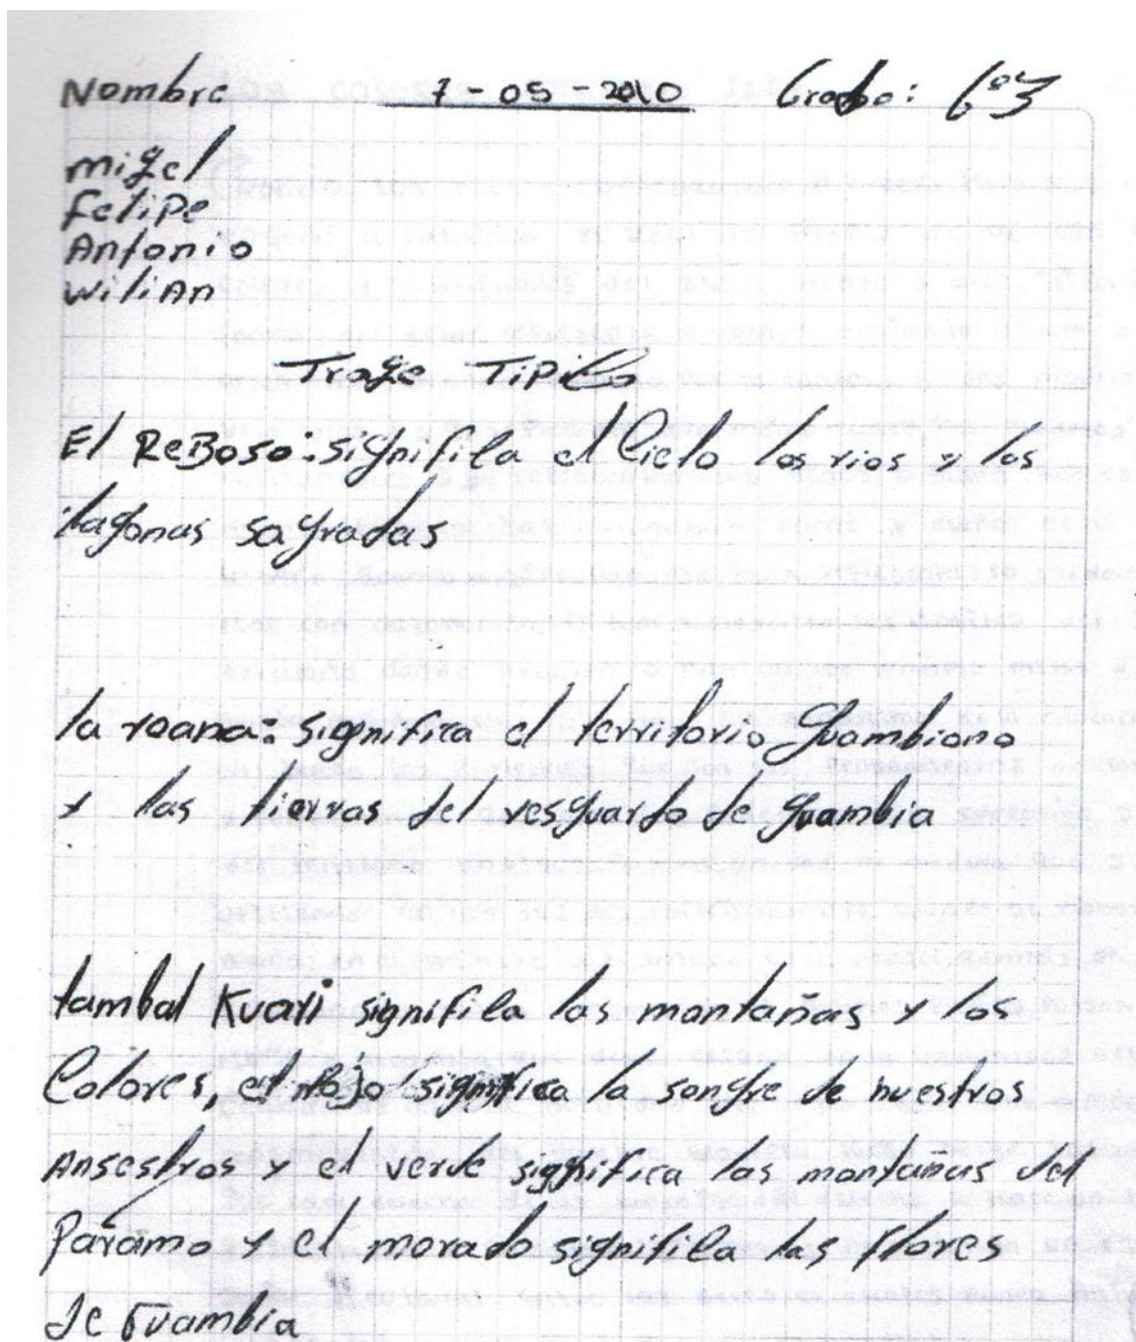 Nombre 7-05-2010 Grado: 6°3
migel
Felipe
Antonio
wiliAn
Traje Tipico
El ReBoso: significa el Cielo los rios y los
lagonas sagradas
la roana: significa el territorio guambiano
y las tierras del resguardo de guambia
tambal Kuari significa las montañas y los
Colores, el rojo significa la sangre de nuestros
Ansestros y el verde significa las montañas del
Páramo y el morado significa las flores
de Guambia